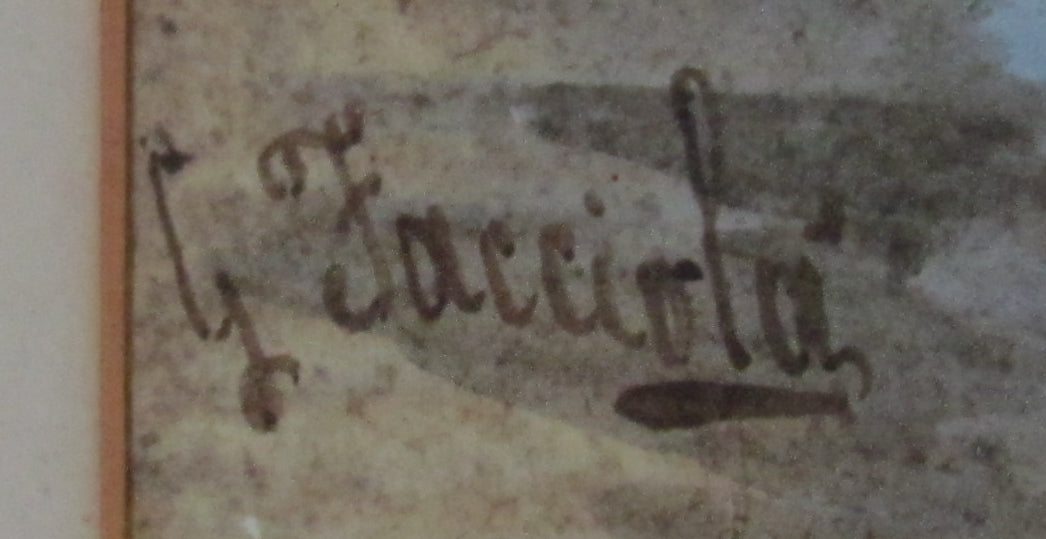 G Facciola